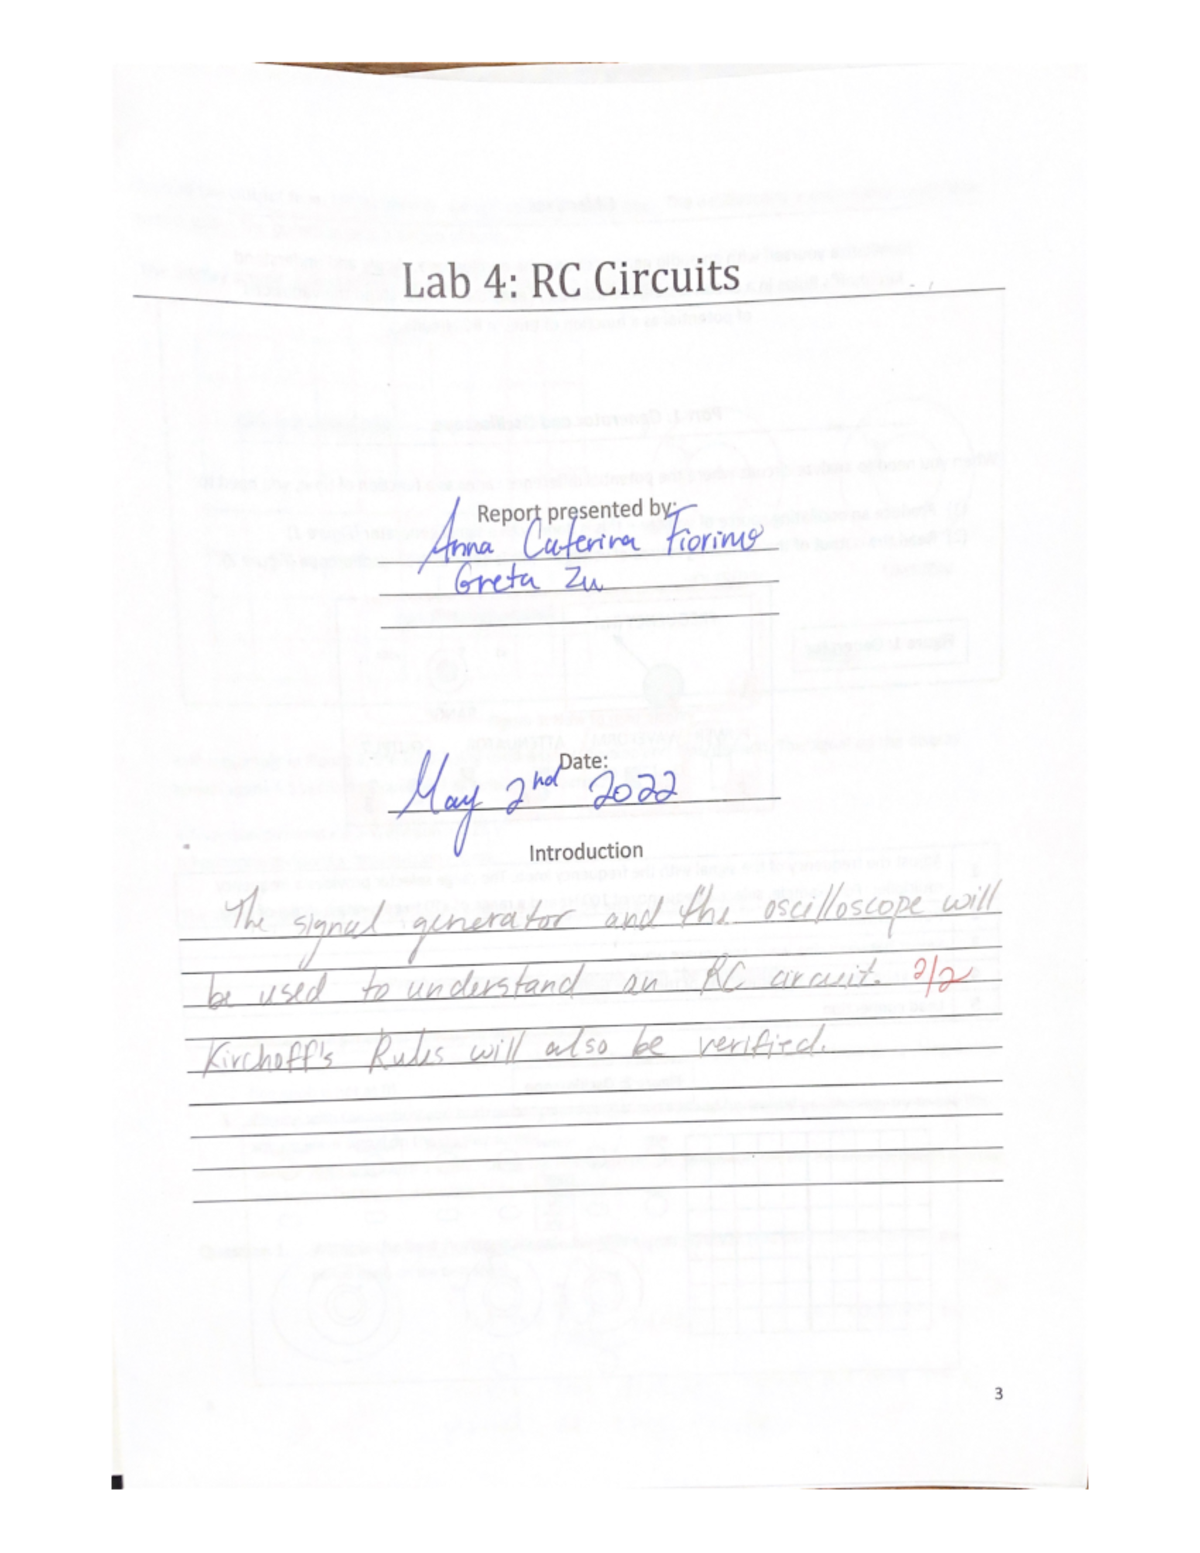 Lab 4: RC Circuits
Report presented by:
Anna Caterina Fiorino
Greta Zu
Date:
May 2nd 2022
Introduction
The signal generator and the oscilloscope will
be used to understand an RC circuit. 2/2
Kirchoff's Rules will also be verified.
3